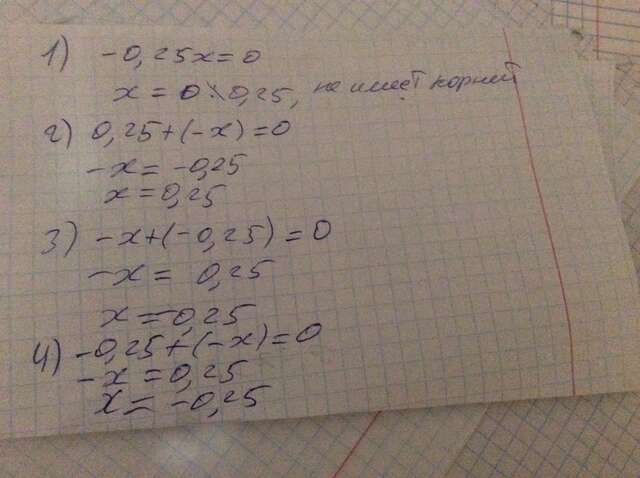 1) -0,25x=0
x = 0 : 0,25, не имеет корней
2) 0,25+(-x)=0
-x = -0,25
x = 0,25
3) -x+(-0,25)=0
-x = 0,25
x = -0,25
4) -0,25+(-x)=0
-x = 0,25
x = -0,25